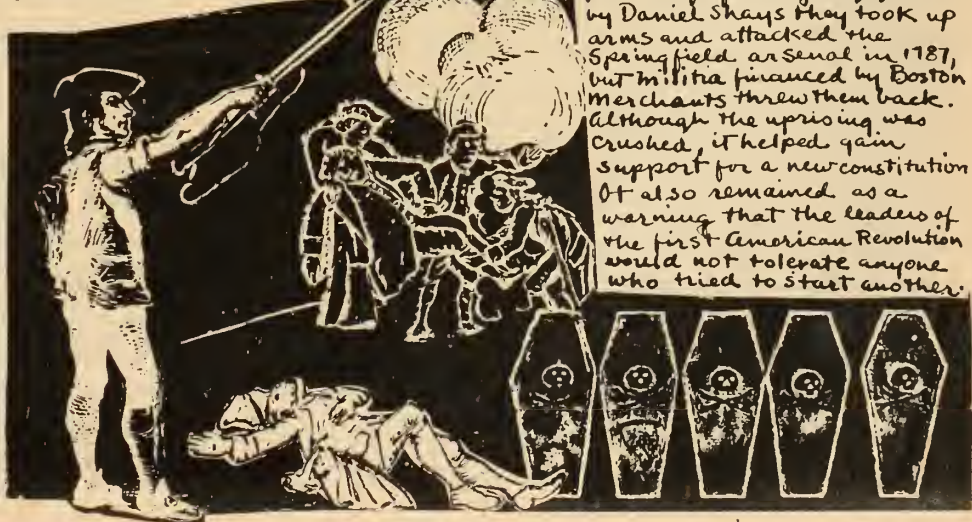 by Daniel Shays they took up
arms and attacked the
Springfield arsenal in 1787,
but militia financed by Boston
Merchants threw them back.
Although the uprising was
crushed, it helped gain
support for a new constitution
It also remained as a
warning that the leaders of
the first American Revolution
would not tolerate anyone
who tried to start another.